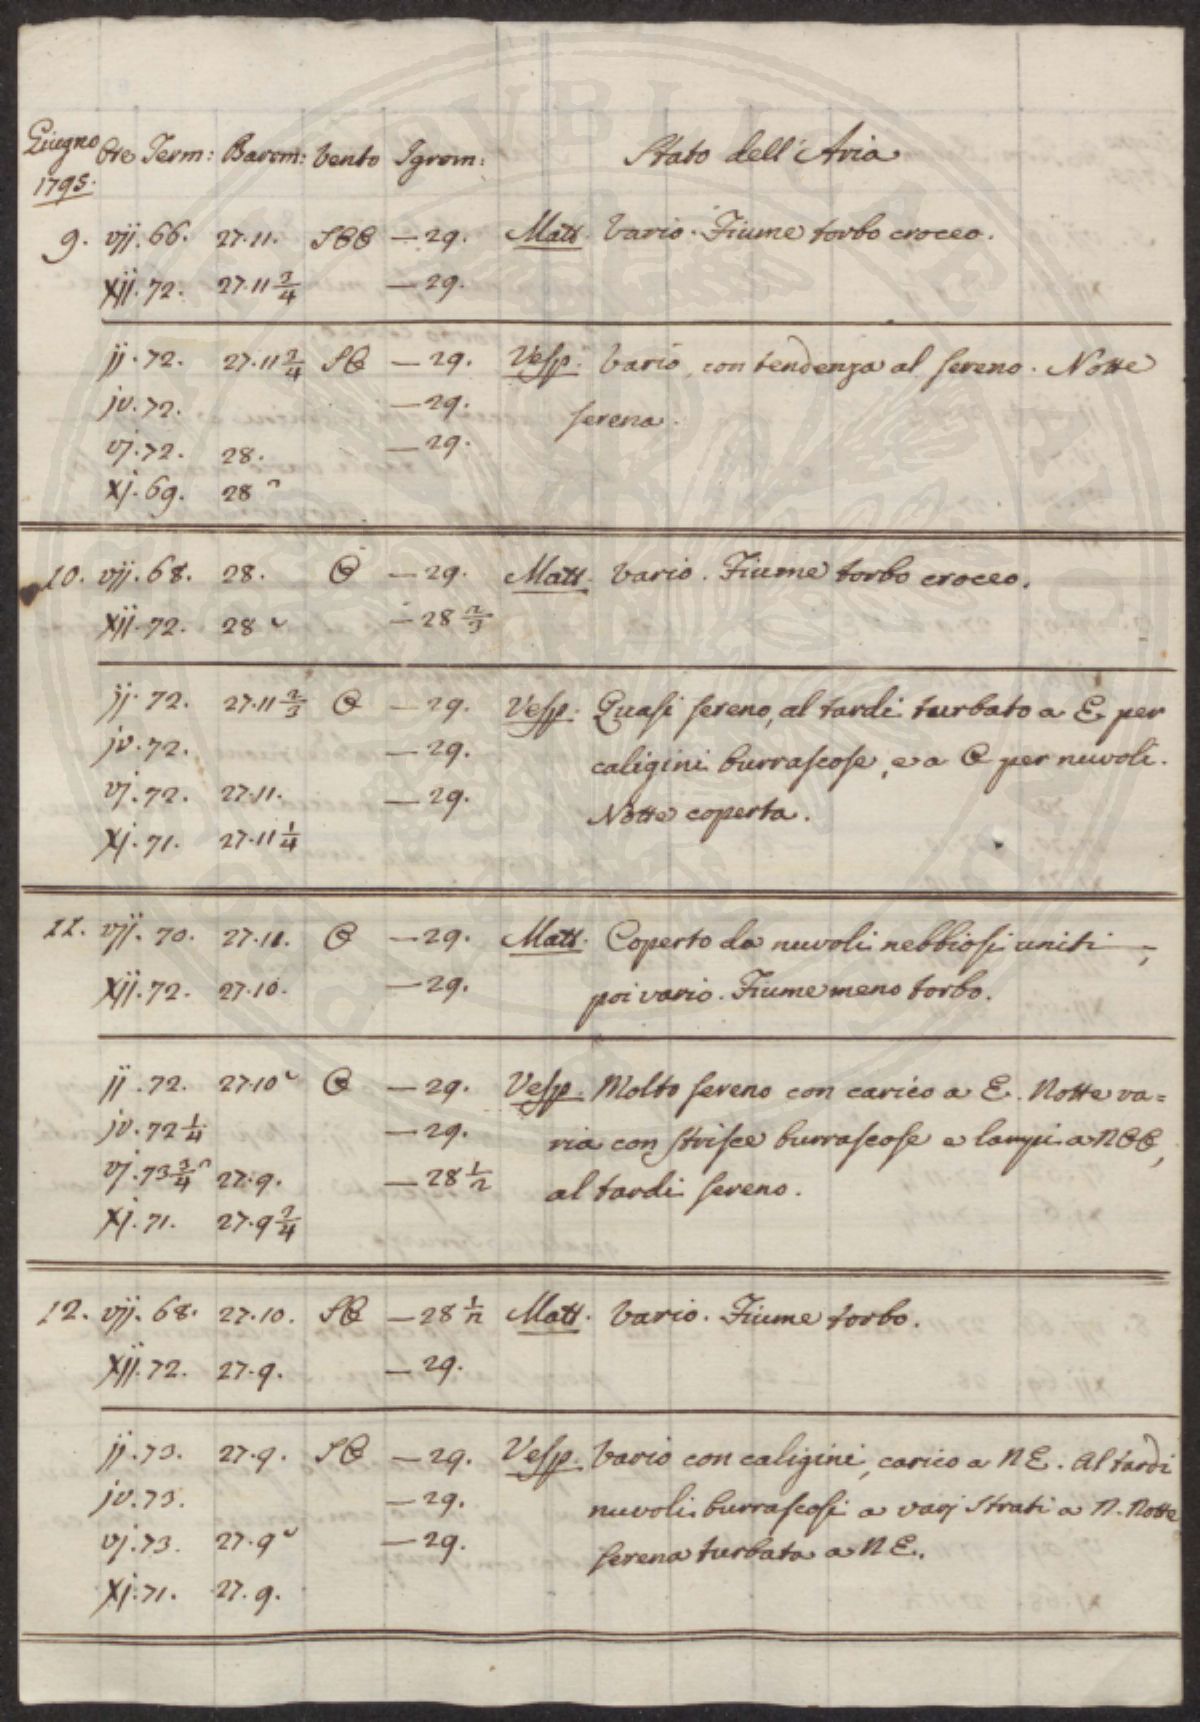 Giugno 1795. Ore Term: Barom: Vento Igrom: Stato dell'Aria
9. vij. 66. 27.11. SOO — 29. Matt. Vario. Fiume torbo croceo.
xij. 72. 27.11 3/4 — 29.
ij. 72. 27.11 3/4 SO — 29. Vesp. Vario, con tendenza al sereno. Notte
jv. 72. — 29. serena.
vj. 72. 28. — 29.
xj. 69. 28
10. vij. 68. 28. O — 29. Matt. Vario. Fiume torbo croceo.
xij. 72. 28 — 28 2/3
ij. 72. 27.11 2/3 O — 29. Vesp. Quasi sereno, al tardi turbato a E per
jv. 72. — 29. caligini burrascose, e a O per nuvoli.
vj. 72. 27.11. — 29. Notte coperta.
xj. 71. 27.11 1/4
11. vij. 70. 27.11. O — 29. Matt. Coperto da nuvoli nebbiosi uniti;
xij. 72. 27.10. — 29. poi vario. Fiume meno torbo.
ij. 72. 27.10 O — 29. Vesp. Molto sereno con carico a E. Notte va=
jv. 72 1/4 — 29. ria con strisce burrascose e lampi a NOO,
vj. 73 3/4 27.9. — 28 1/2 al tardi sereno.
xj. 71. 27.9 3/4
12. vij. 68. 27.10. SO — 28 1/2 Matt. Vario. Fiume torbo.
xij. 72. 27.9. — 29.
ij. 73. 27.9. SO — 29. Vesp. Vario con caligini, carico a NE. Al tardi
jv. 73. — 29. nuvoli burrascosi a varj strati a N. Notte
vj. 73. 27.9 — 29. serena turbata a NE.
xj. 71. 27.9.